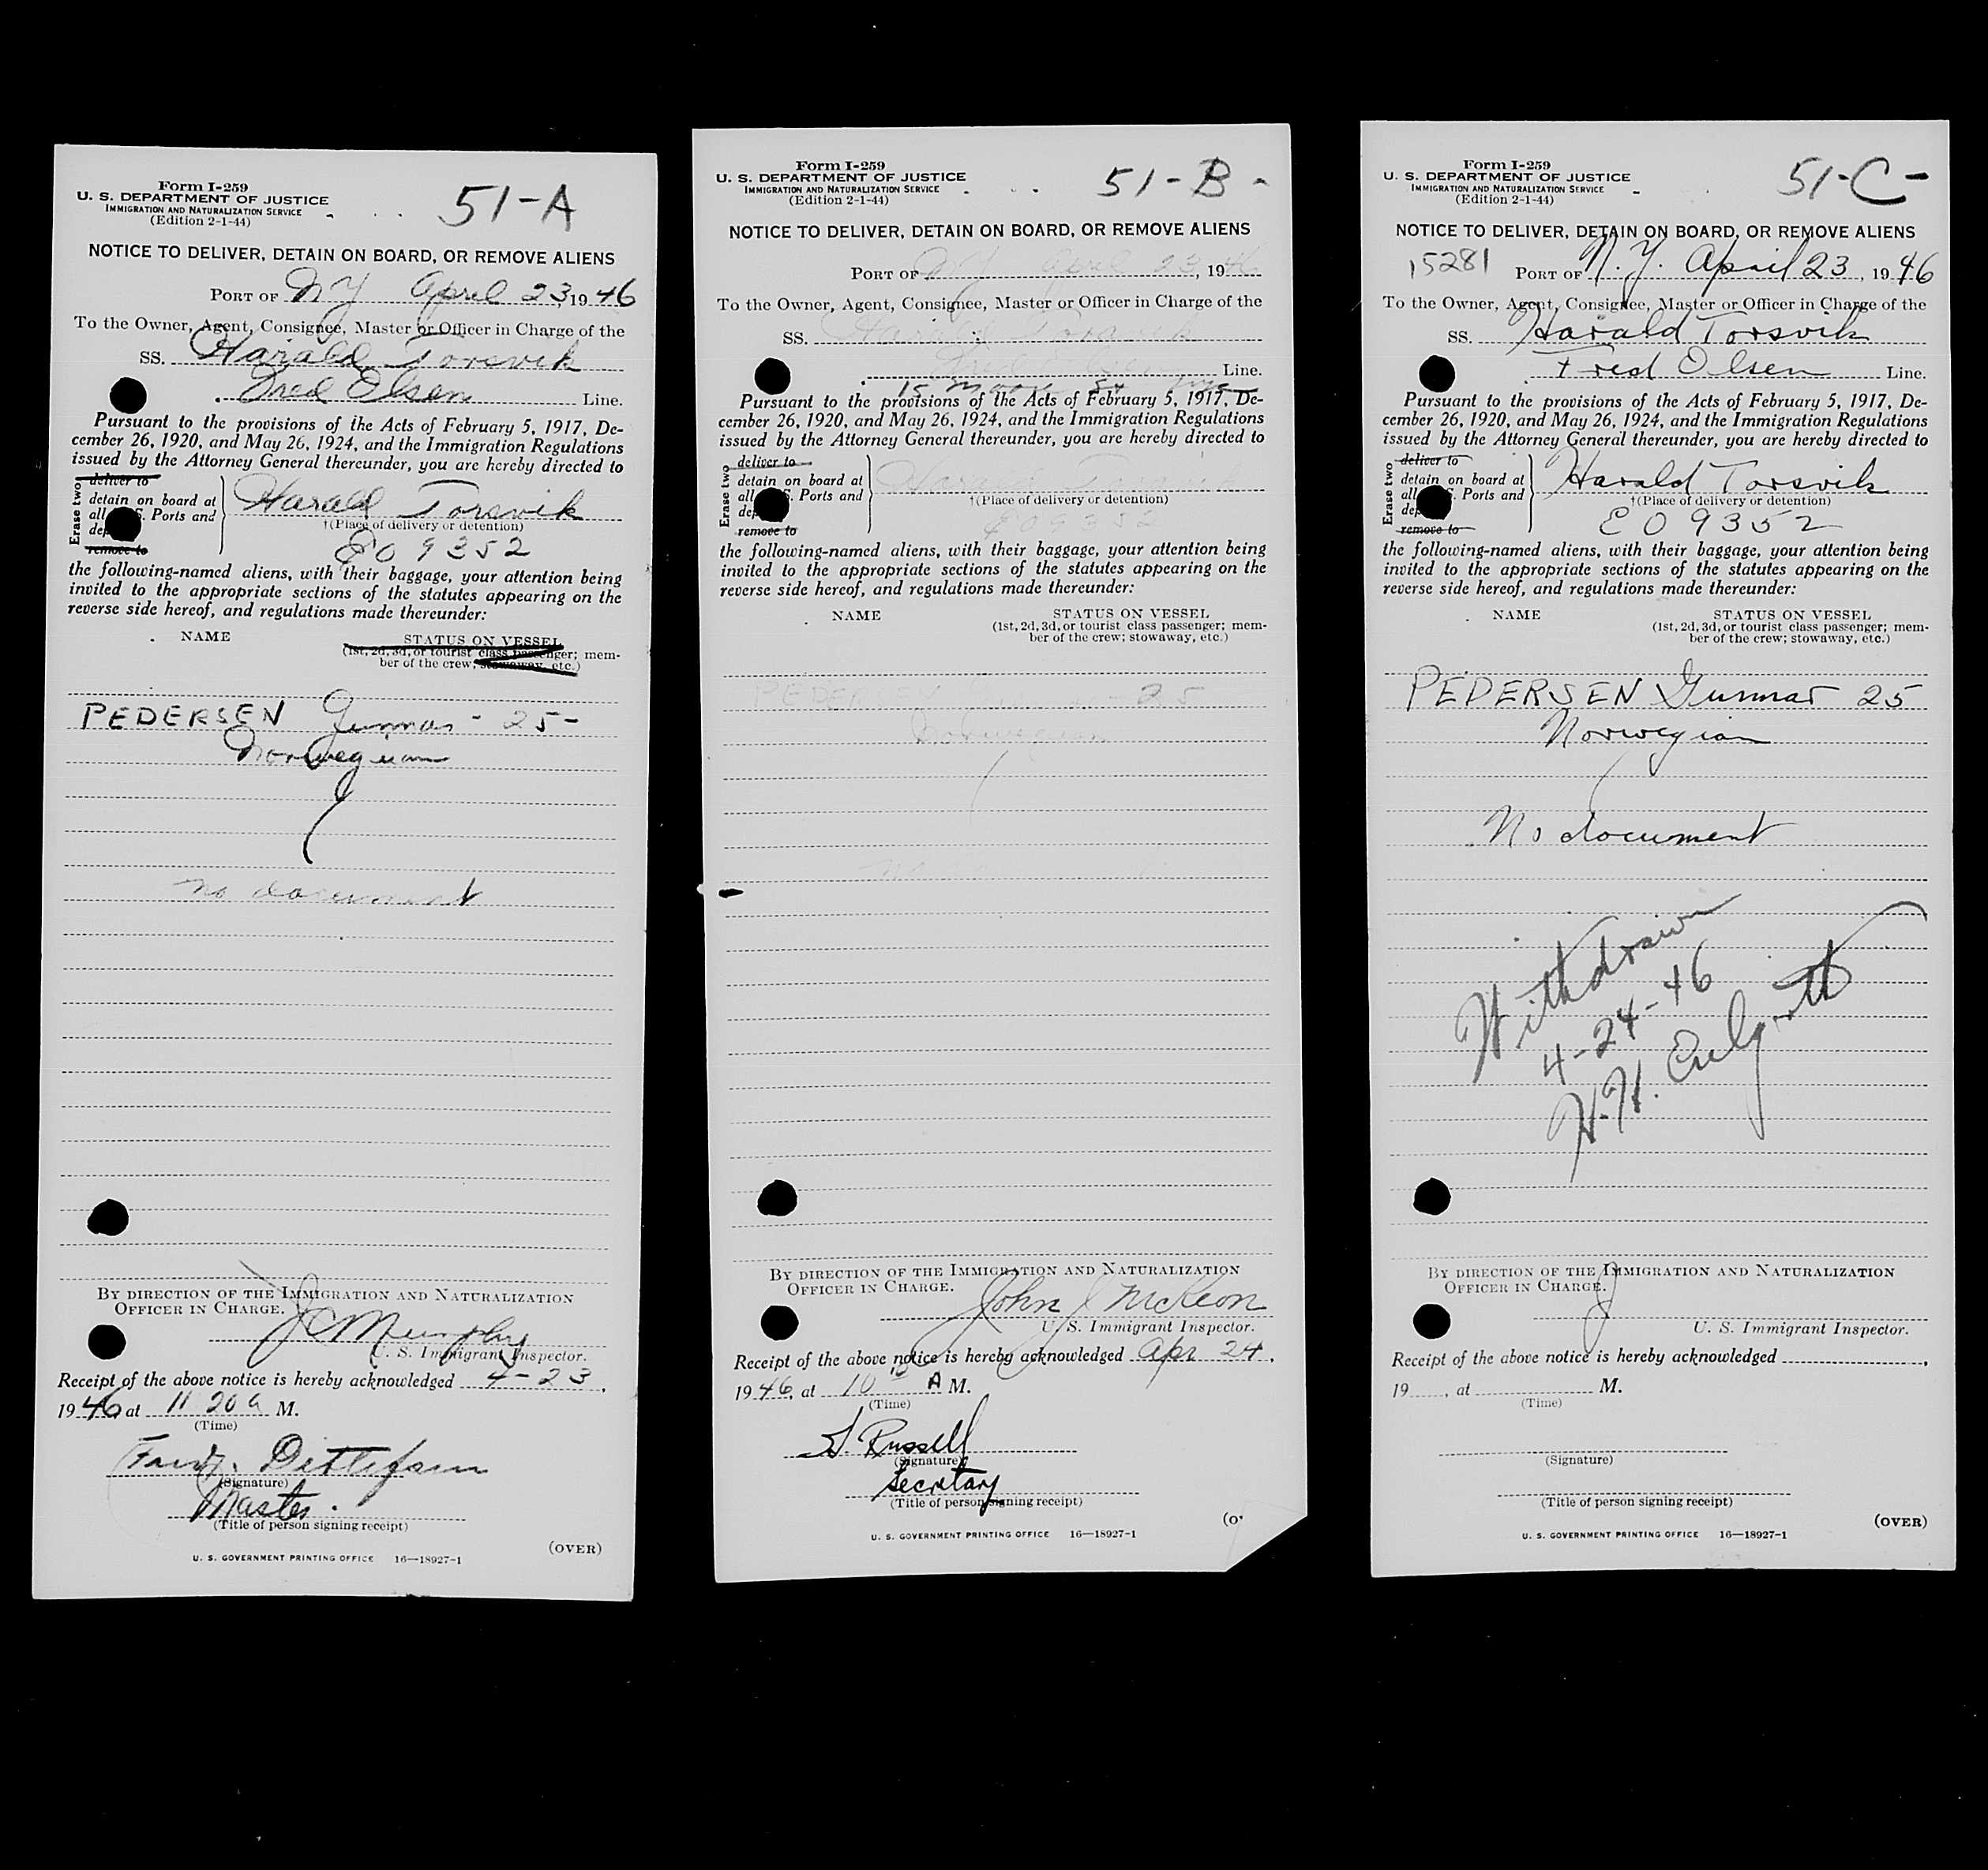 Form I-259
U. S. DEPARTMENT OF JUSTICE
IMMIGRATION AND NATURALIZATION SERVICE
(Edition 2-1-44)
51-A
NOTICE TO DELIVER, DETAIN ON BOARD, OR REMOVE ALIENS
PORT OF NY April 23, 1946
To the Owner, Agent, Consignee, Master or Officer in Charge of the
SS. Harald Torsvik
Fred Olsen Line.
Pursuant to the provisions of the Acts of February 5, 1917, De-
cember 26, 1920, and May 26, 1924, and the Immigration Regulations
issued by the Attorney General thereunder, you are hereby directed to
Erase two
deliver to
detain on board at
all S. Ports and
de
remove to
Harald Torsvik
†(Place of delivery or detention)
E09352
the following-named aliens, with their baggage, your attention being
invited to the appropriate sections of the statutes appearing on the
reverse side hereof, and regulations made thereunder:
NAME STATUS ON VESSEL
(1st, 2d, 3d, or tourist class passenger; mem-
ber of the crew; stowaway, etc.)
PEDERSEN Gunnar - 25-
Norwegian
no document
BY DIRECTION OF THE IMMIGRATION AND NATURALIZATION
OFFICER IN CHARGE.
J C Murphy
U. S. Immigrant Inspector.
Receipt of the above notice is hereby acknowledged 4-23,
1946, at 11 20 a M.
(Time)
Dittlefsen
(Signature)
Master.
(Title of person signing receipt)
(OVER)
U. S. GOVERNMENT PRINTING OFFICE 16—18927-1
Form I-259
U. S. DEPARTMENT OF JUSTICE
IMMIGRATION AND NATURALIZATION SERVICE
(Edition 2-1-44)
51-B-
NOTICE TO DELIVER, DETAIN ON BOARD, OR REMOVE ALIENS
PORT OF NY April 23, 1946
To the Owner, Agent, Consignee, Master or Officer in Charge of the
SS. Harald Torsvik
Fred Olsen Line.
15 Moore St
Pursuant to the provisions of the Acts of February 5, 1917, De-
cember 26, 1920, and May 26, 1924, and the Immigration Regulations
issued by the Attorney General thereunder, you are hereby directed to
Erase two
deliver to
detain on board at
all S. Ports and
de
remove to
Harald Torsvik
†(Place of delivery or detention)
E09352
the following-named aliens, with their baggage, your attention being
invited to the appropriate sections of the statutes appearing on the
reverse side hereof, and regulations made thereunder:
NAME STATUS ON VESSEL
(1st, 2d, 3d, or tourist class passenger; mem-
ber of the crew; stowaway, etc.)
PEDERSEN 25
Norwegian
BY DIRECTION OF THE IMMIGRATION AND NATURALIZATION
OFFICER IN CHARGE.
John J McKeon
U. S. Immigrant Inspector.
Receipt of the above notice is hereby acknowledged Apr 24,
1946, at 10 10 A M.
(Time)
S. Russell
(Signature)
Secretary
(Title of person signing receipt)
U. S. GOVERNMENT PRINTING OFFICE 16—18927-1
Form I-259
U. S. DEPARTMENT OF JUSTICE
IMMIGRATION AND NATURALIZATION SERVICE
(Edition 2-1-44)
51-C-
NOTICE TO DELIVER, DETAIN ON BOARD, OR REMOVE ALIENS
15281 PORT OF N.Y. April 23, 1946
To the Owner, Agent, Consignee, Master or Officer in Charge of the
SS. Harald Torsvik
Fred Olsen Line.
Pursuant to the provisions of the Acts of February 5, 1917, De-
cember 26, 1920, and May 26, 1924, and the Immigration Regulations
issued by the Attorney General thereunder, you are hereby directed to
Erase two
deliver to
detain on board at
all S. Ports and
de
remove to
Harald Torsvik
†(Place of delivery or detention)
E09352
the following-named aliens, with their baggage, your attention being
invited to the appropriate sections of the statutes appearing on the
reverse side hereof, and regulations made thereunder:
NAME STATUS ON VESSEL
(1st, 2d, 3d, or tourist class passenger; mem-
ber of the crew; stowaway, etc.)
PEDERSEN Gunnar 25
Norwegian
No document
Withdrawn
4-24-46
H.H.
BY DIRECTION OF THE IMMIGRATION AND NATURALIZATION
OFFICER IN CHARGE.
U. S. Immigrant Inspector.
Receipt of the above notice is hereby acknowledged ,
19 , at M.
(Time)
(Signature)
(Title of person signing receipt)
(OVER)
U. S. GOVERNMENT PRINTING OFFICE 16—18927-1